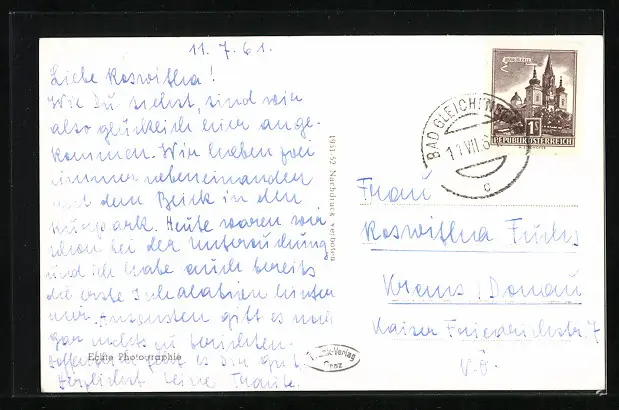 11. 7. 61.
Liebe Roswitha!
Wie Du siehst, sind wir
also glücklich hier ange-
kommen. Wir haben zwei
Zimmer nebeneinander
mit dem Blick in den
Kurpark. Heute waren wir
schon bei der Untersuchung
und ich habe auch bereits
die erste Inhalation hinter
mir. Ansonsten gibt es noch
gar nichts zu berichten.
Hoffentlich geht es Dir gut.
Herzlichst Deine Traute.
Echte Photographie
1951/52 Nachdruck verboten
-Verlag
Graz
BAD GLEICHENBERG
11.VII.6
c
MARIAZELL
1S
REPUBLIK ÖSTERREICH
Frau
Roswitha Fuchs
Krems / Donau
Kaiser Friedrichstr. 7
N.Ö.